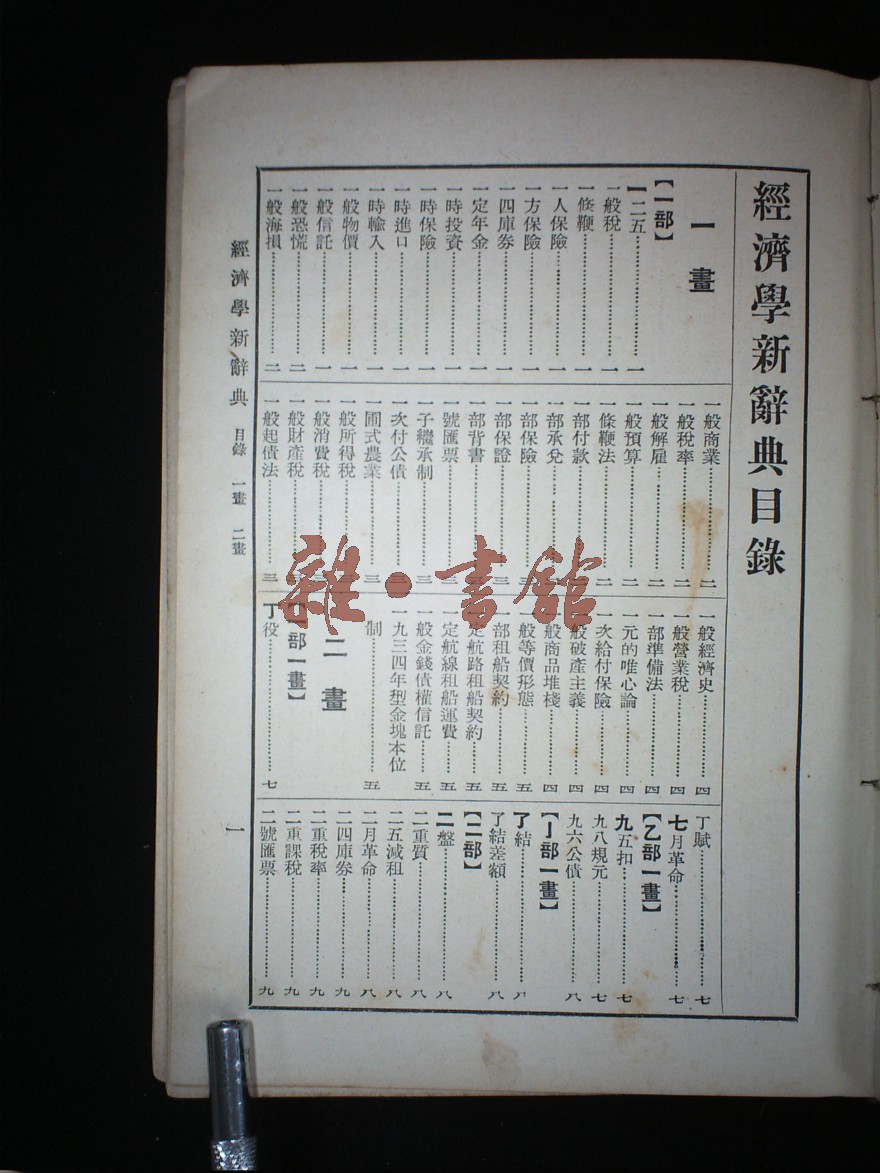 經濟學新辭典目錄
一畫
【一部】
一二五……一
一般稅……一
一條鞭……一
一人保險……一
一方保險……一
一四庫券……一
一定年金……一
一時投資……一
一時保險……一
一時進口……一
一時輸入……一
一般物價……一
一般信託……一
一般恐慌……二
一般海損……二
一般商業……二
一般稅率……二
一般解雇……二
一般預算……二
一條鞭法……二
一部付款
一部承兌
一部保險
一部保證
一部背書
一號匯票……三
一子繼承制……三
一次付公債……三
一圃式農業……三
一般所得稅
一般消費稅
一般財產稅
一般起債法……三
一般經濟史……四
一般營業稅……四
一部準備法……四
一元的唯心論……四
一次給付保險……四
一般破產主義……四
一般商品堆棧……四
一般等價形態……五
一部租船契約……五
一定航路租船契約……五
一定航線租船運費……五
一般金錢債權信託……五
一九三四年型金塊本位
制……五
二畫
【一部一畫】
丁役……七
丁賦……七
七月革命……七
【乙部一畫】
九五扣……七
九八規元……七
九六公債……八
【亅部一畫】
了結……八
了結差額……八
【二部】
二盤……八
二重質……八
二五減租……八
二月革命……八
二四庫券……九
二重稅率……九
二重課稅……九
二號匯票……九
經濟學新辭典 目錄 一畫 二畫
一
雜·書館